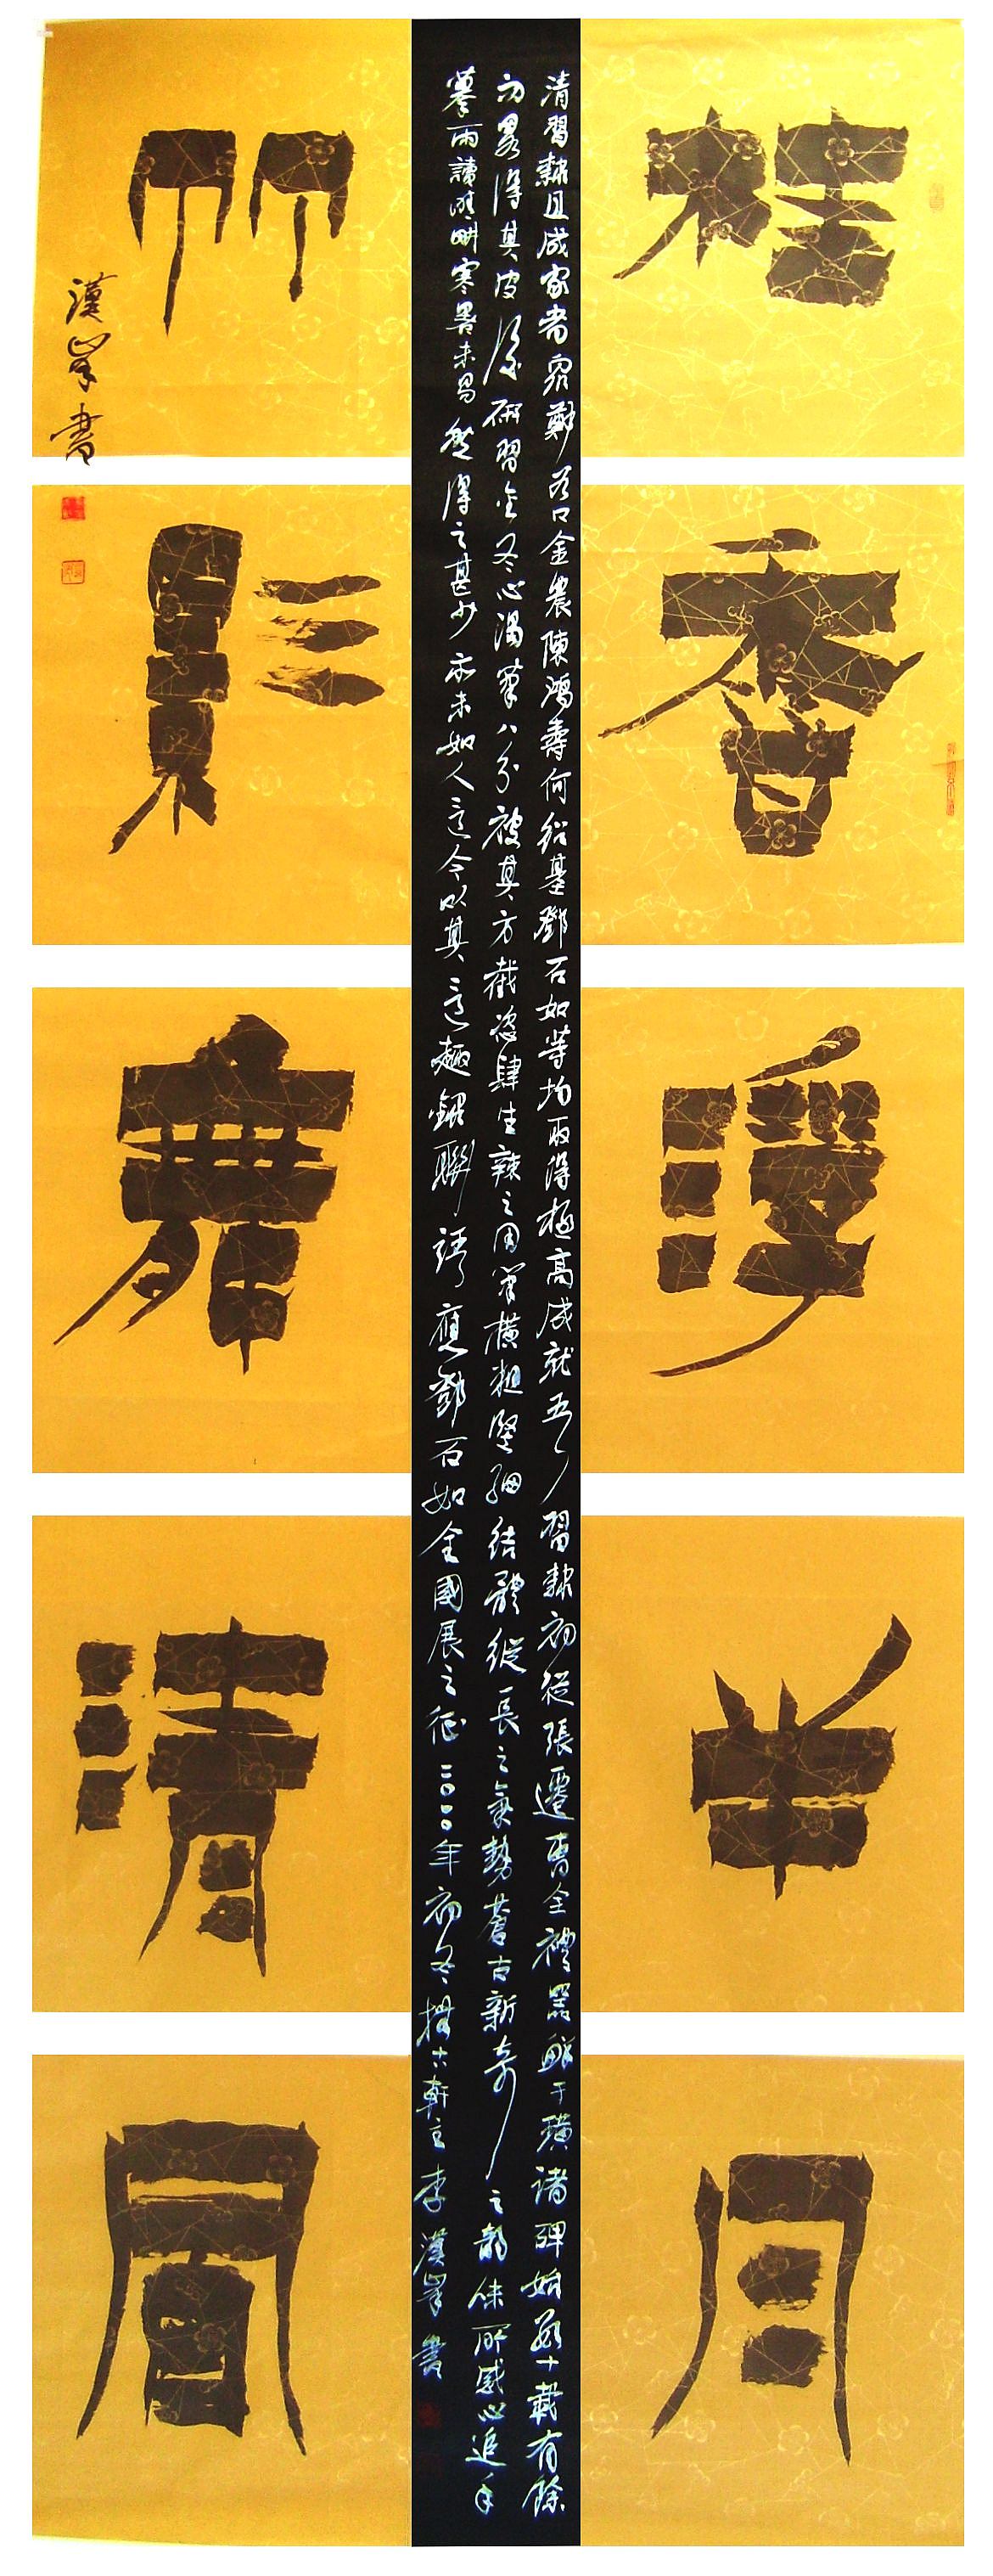 桂香浮半月
清習隸且成家者眾鄭谷口金農陳鴻壽何紹基鄧石如等均取得極高成就吾習隸初從張遷曹全禮器鮮于璜諸碑始茲十載有餘
初略得其皮後研習金冬心渴筆八分被其方截恣肆生辣之用筆橫粗竪細結體縱長之氣勢蒼古新奇之韻味所感心追手
摹雨讀晴耕寒暑未易然得之甚少亦未如人意今以其意趣錄聯語應鄧石如全國展之征二〇〇〇年初冬軒主李漢峯書
竹影舞清風
漢峯書